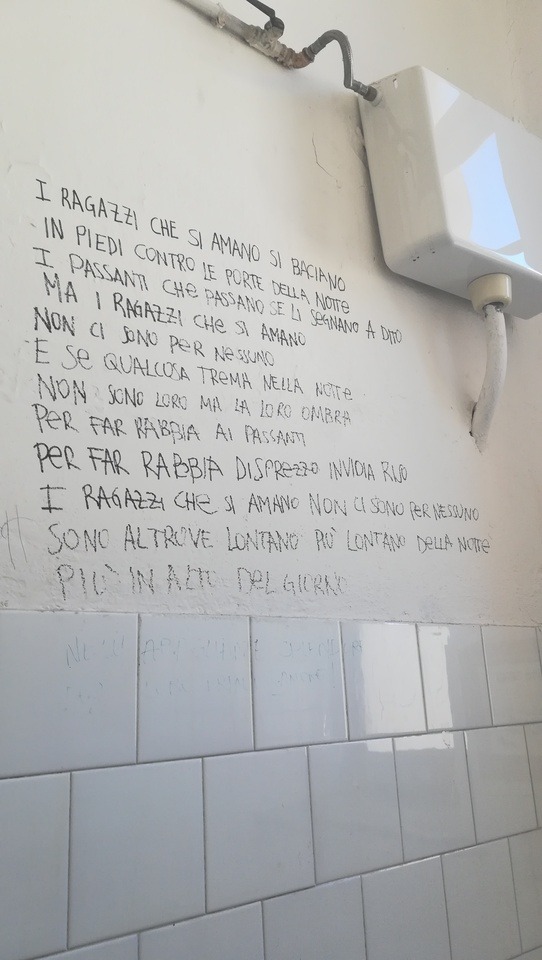 I RAGAZZI CHE SI AMANO SI BACIANO
IN PIEDI CONTRO LE PORTE DELLA NOTTE
I PASSANTI CHE PASSANO SE LI SEGNANO A DITO
MA I RAGAZZI CHE SI AMANO
NON CI SONO PER NESSUNO
E SE QUALCOSA TREMA NELLA NOTTE
NON SONO LORO MA LA LORO OMBRA
PER FAR RABBIA AI PASSANTI
PER FAR RABBIA DISPREZZO INVIDIA RISO
I RAGAZZI CHE SI AMANO NON CI SONO PER NESSUNO
SONO ALTROVE LONTANO PIÙ LONTANO DELLA NOTTE
PIÙ IN ALTO DEL GIORNO